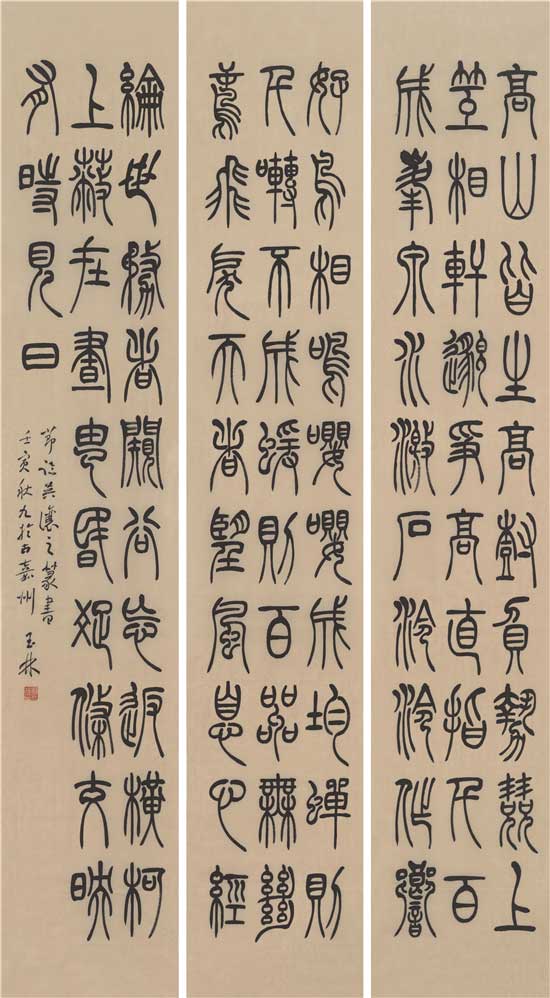 高山皆生高樹負勢競上
互相軒邈爭高直指千百
成峯泉水激石泠泠作響
好鳥相鳴嚶嚶成均蟬則
千囀不成蝯則百嘂無絕
鳶飛戾天者望風息心經
綸世務者闚谷忘返橫柯
上蔽在晝由昏疏條交映
有時見日
節臨吳讓之篆書
壬寅秋九於古嘉州 玉林